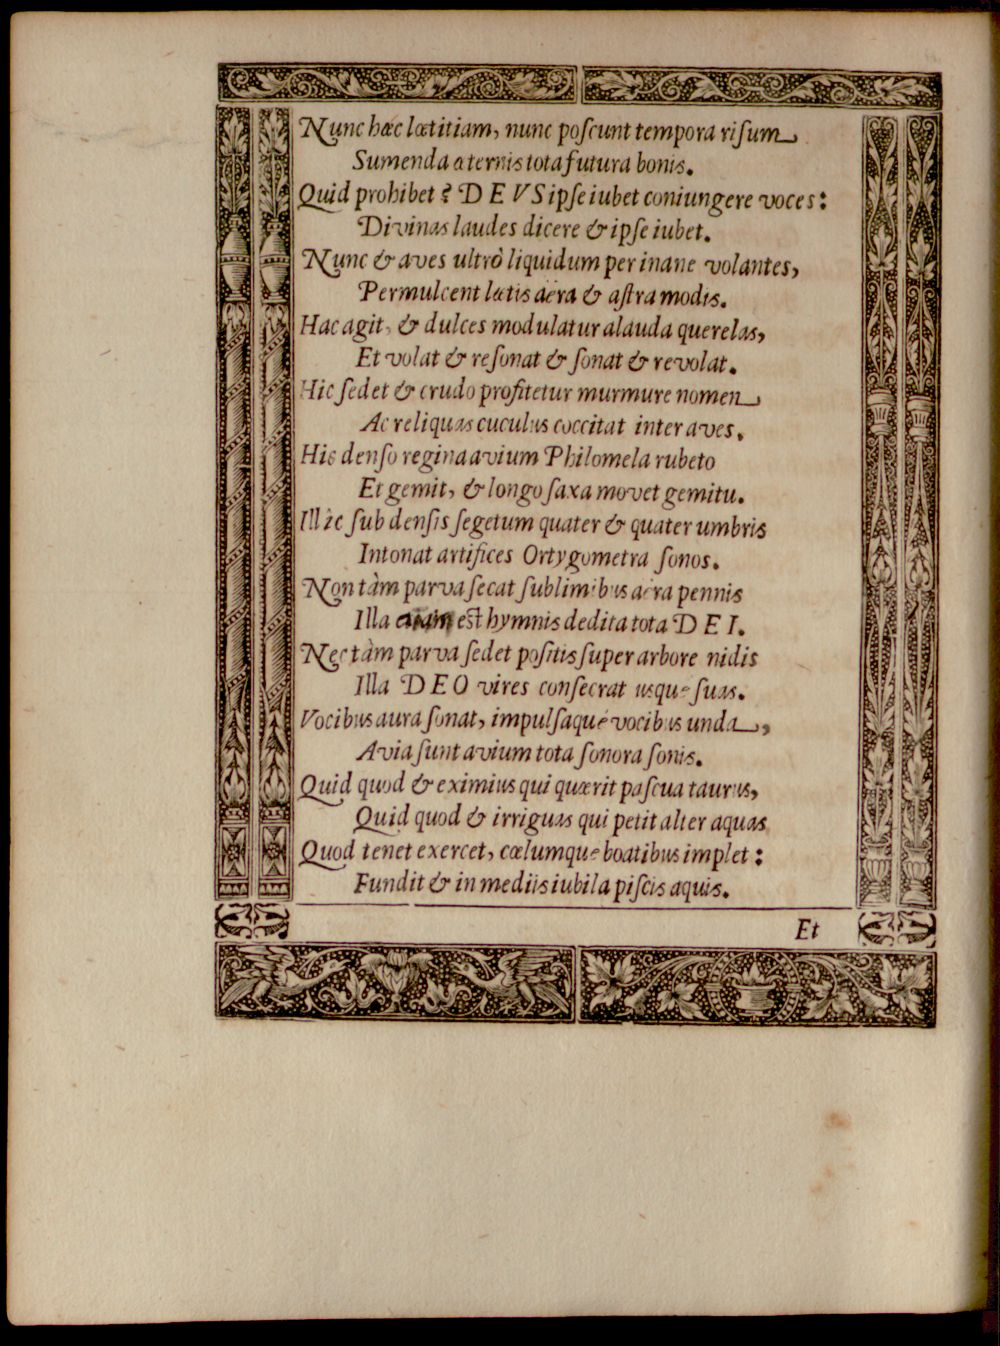 Nunc hæc lætitiam, nunc poſcunt tempora riſum
Sumenda æternis tota futura bonis.
Quid prohibet? DEVS ipſe iubet coniungere voces:
Divinas laudes dicere & ipſe iubet.
Nunc & aves ultrò liquidum per inane volantes,
Permulcent lætis aëra & aſtra modis.
Hac agit, & dulces modulatur alauda querelas,
Et volat & reſonat & ſonat & revolat.
Hic ſedet & crudo profitetur murmure nomen,
Ac reliquas cuculus coccitat inter aves,
Hic denſo regina avium Philomela rubeto
Et gemit, & longo ſaxa movet gemitu.
Illîc ſub denſis ſegetum quater & quater umbris
Intonat artifices Ortygometra ſonos.
Non tàm parva ſecat ſublimibus aëra pennis
Illa est hymnis dedita tota DEI.
Nec tàm parva ſedet poſitis ſuper arbore nidis
Illa DEO vires conſecrat usque ſuas.
Vocibus aura ſonat, impulſaqué vocibus unda,
Avia ſunt avium tota ſonora ſonis.
Quid quod & eximius qui quærit paſcua taurus,
Quid quod & irriguas qui petit alter aquas
Quod tenet exercet, cælumque boatibus implet:
Fundit & in mediis iubila piſcis aquis.
Et